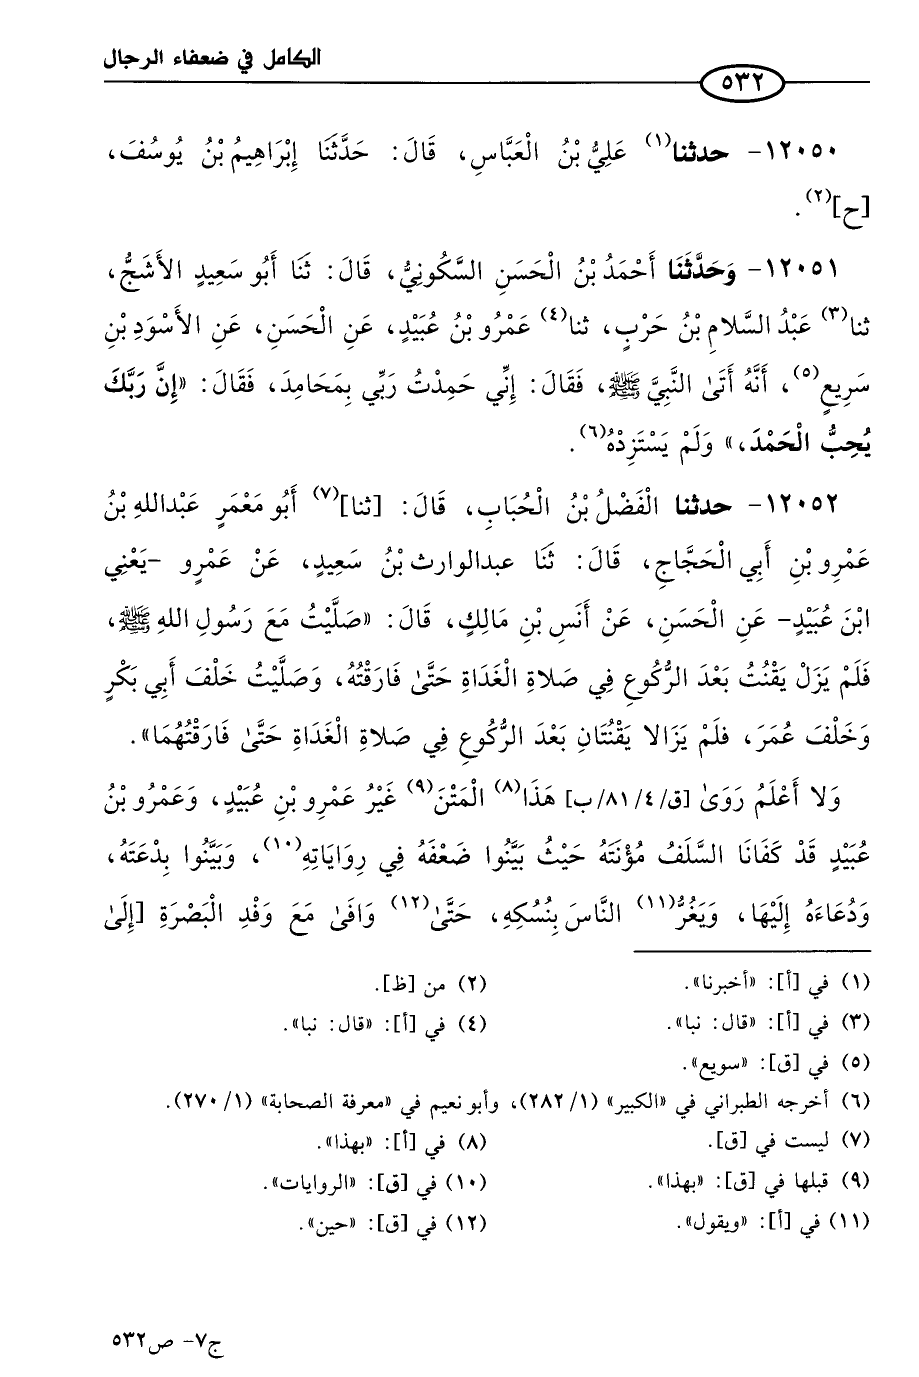 الكامل في ضعفاء الرجال
٥٣٢
١٢٠٥٠- حدثنا(١) عَلِيُّ بْنُ الْعَبَّاسِ، قَالَ: حَدَّثَنَا إِبْرَاهِيمُ بْنُ يُوسُفَ،
[ح](٢).
١٢٠٥١- وَحَدَّثَنَا أَحْمَدُ بْنُ الْحَسَنِ السَّكُونِيُّ، قَالَ: ثَنَا أَبُو سَعِيدٍ الأَشَجُّ،
ثنا(٣) عَبْدُ السَّلامِ بْنُ حَرْبٍ، ثنا(٤) عَمْرُو بْنُ عُبَيْدٍ، عَنِ الْحَسَنِ، عَنِ الأَسْوَدِ بْنِ
سَرِيعٍ(٥)، أَنَّهُ أَتَىٰ النَّبِيَّ ﷺ، فَقَالَ: إِنِّي حَمِدْتُ رَبِّي بِمَحَامِدَ، فَقَالَ: «إِنَّ رَبَّكَ
يُحِبُّ الْحَمْدَ،» وَلَمْ يَسْتَزِدْهُ(٦).
١٢٠٥٢- حدثنا الْفَضْلُ بْنُ الْحُبَابِ، قَالَ: [ثنا](٧) أَبُو مَعْمَرٍ عَبْداللهِ بْنُ
عَمْرِو بْنِ أَبِي الْحَجَّاجِ، قَالَ: ثَنَا عبدالوارث بْنُ سَعِيدٍ، عَنْ عَمْرٍو -يَعْنِي
ابْنَ عُبَيْدٍ- عَنِ الْحَسَنِ، عَنْ أَنَسِ بْنِ مَالِكٍ، قَالَ: «صَلَّيْتُ مَعَ رَسُولِ اللهِ ﷺ،
فَلَمْ يَزَلْ يَقْنُتُ بَعْدَ الرُّكُوعِ فِي صَلاةِ الْغَدَاةِ حَتَّىٰ فَارَقْتُهُ، وَصَلَّيْتُ خَلْفَ أَبِي بَكْرٍ
وَخَلْفَ عُمَرَ، فلَمْ يَزَالا يَقْنُتَانِ بَعْدَ الرُّكُوعِ فِي صَلاةِ الْغَدَاةِ حَتَّىٰ فَارَقْتُهُمَا».
وَلا أَعْلَمُ رَوَىٰ [ق/٤/ ٨١/ب] هَذَا(٨) الْمَتْنَ(٩) غَيْرُ عَمْرِو بْنِ عُبَيْدٍ، وَعَمْرُو بْنُ
عُبَيْدٍ قَدْ كَفَانَا السَّلَفُ مُؤْنَتَهُ حَيْثُ بَيَّنُوا ضَعْفَهُ فِي رِوَايَاتِهِ(١٠)، وَبَيَّنُوا بِدْعَتَهُ،
وَدُعَاءَهُ إِلَيْهَا، وَيَغُرُّ(١١) النَّاسَ بِنُسُكِهِ، حَتَّىٰ(١٢) وَافَىٰ مَعَ وَفْدِ الْبَصْرَةِ [إِلَىٰ
(١) في [أ]: «أخبرنا».
(٢) من [ظ].
(٣) في [أ]: «قال: نبا».
(٤) في [أ]: «قال: نبا».
(٥) في [ق]: «سويع».
(٦) أخرجه الطبراني في «الكبير» (١/ ٢٨٢)، وأبو نعيم في «معرفة الصحابة» (١/ ٢٧٠).
(٧) ليست في [ق].
(٨) في [أ]: «بهذا».
(٩) قبلها في [ق]: «بهذا».
(١٠) في [ق]: «الروايات».
(١١) في [أ]: «ويقول».
(١٢) في [ق]: «حين».
ج٧- ص٥٣٢